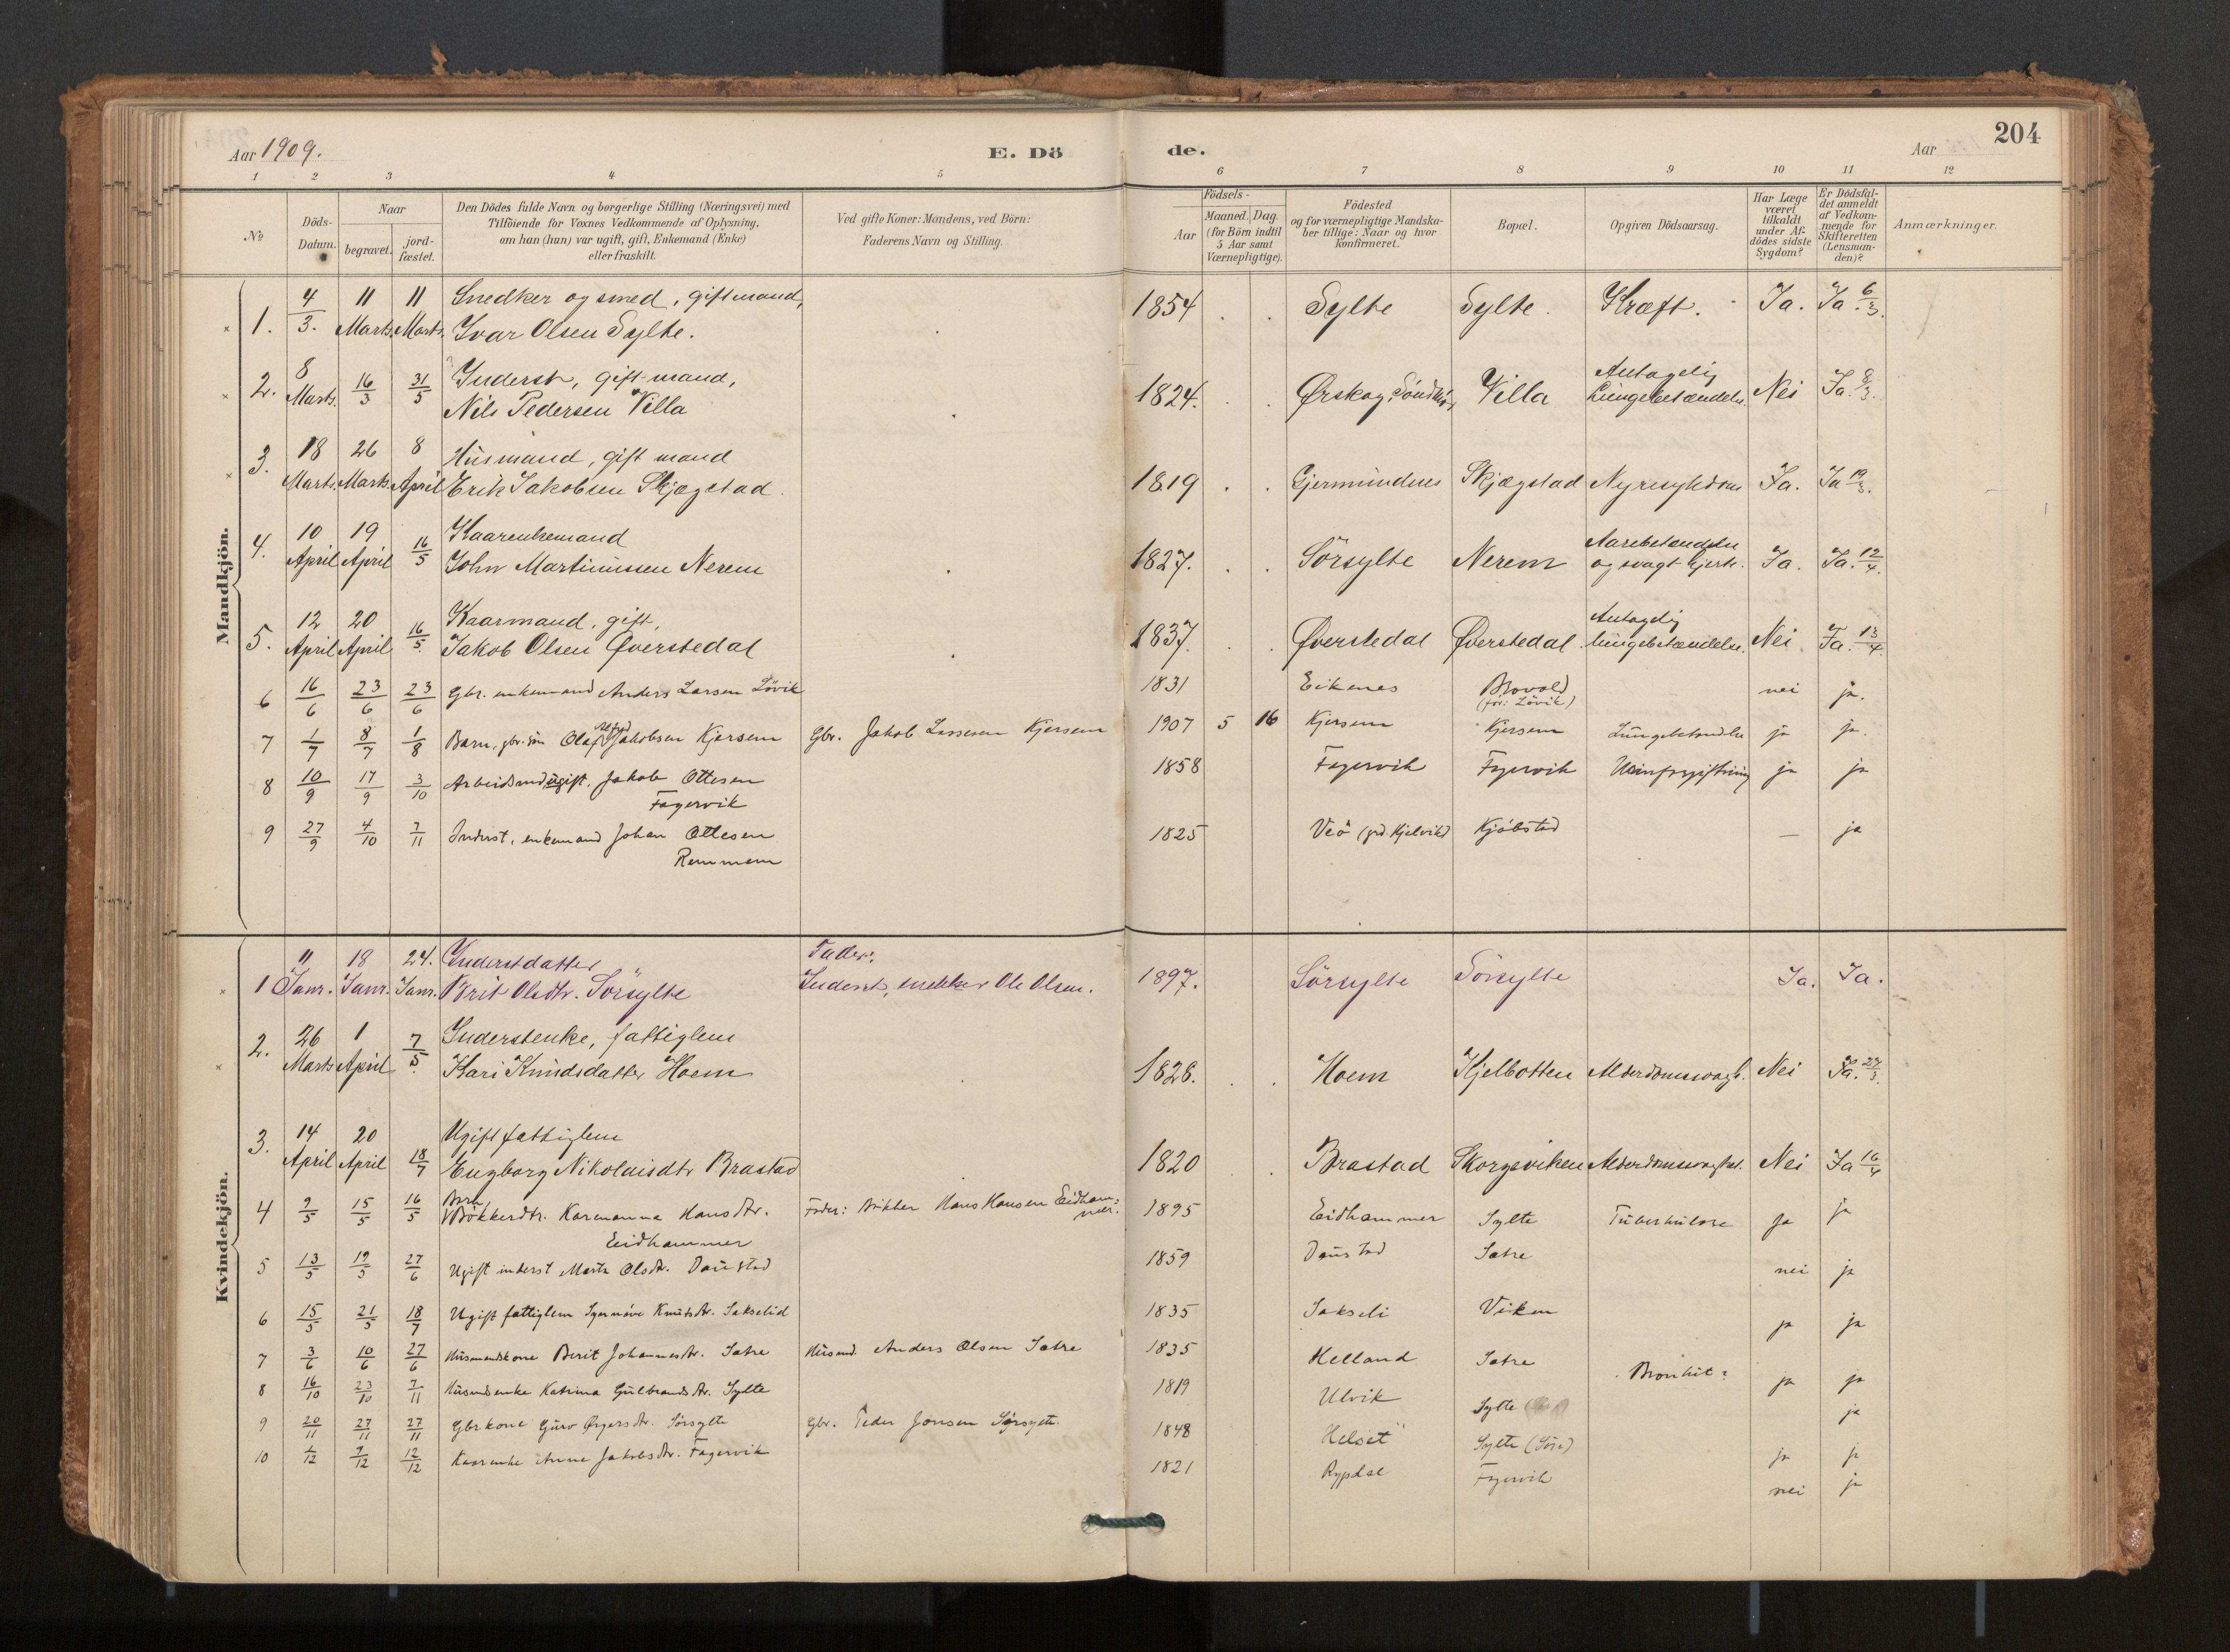 204
Aar 1909.
E. Dö
de.
Aar
1 2 3 4 5 6 7 8 9 10 11 12
No
Döds-Datum.
Naar
begravet.
jord-fæstet.
Den Dödes fulde Navn og borgerlige Stilling (Næringsvei) med
Tilföiende for Voxnes Vedkommende af Oplysning,
om han (hun) var ugift, gift, Enkemand (Enke)
eller fraskilt.
Ved gifte Koner: Mandens, ved Börn:
Faderens Navn og Stilling.
Födsels-
Aar
Maaned. Dag.
(for Börn indtil
5 Aar samt
Værnepligtige).
Födested
og for værnepligtige Mandska-
ber tillige: Naar og hvor
Konfirmeret.
Bopæl.
Opgiven Dödsaarsag.
Har Læge
været
tilkaldt
under Af-
dödes sidste
Sygdom?
Er Dödsfal-
det anmeldt
af Vedkom-
mende for
Skifteretten
(Lensman-
den)?
Anmærkninger.
Mandkjön.
1. 4/3. 11 Marts. 11 Marts. Snedker og smed, gift mand, Ivar Olsen Sylte. 1854 Sylte Sylte. Kræft. Ja. Ja. 6/3.
2. 8 Marts. 16/3 31/5 Inderst, gift mand, Nils Pedersen Villa 1824. Ørskog, Söndm. Villa Antagelig Lungebetændelse. Nei Ja. 8/3.
3. 18 Marts. 26 Marts. 8 April Husmand, gift mand Erik Jakobsen Skjægstad. 1819 Gjermundnes Skjægstad Nyresykdom Ja. Ja 19/3.
4. 10 April 19 April 16/5 Kaarenkemand John Martinussen Nerem 1827. Sörsylte Nerem Aarebetændelse og svagt hjerte. Ja. Ja. 12/4.
5. 12 April 20 April 16/5. Kaarmand, gift, Jakob Olsen Øverstedal 1837. Øverstedal Øverstedal Antagelig lungebetændelse. Nei. Ja. 13/4.
6 16/6 23/6 23/6 Gbr. enkemand Anders Larsen Lövik 1831 Eikenes Brovold (før: Lövik) nei ja.
7 1/7 8/7 1/8 Barn, gbr. sön Olaf Alfred Jakobsen Kjersem Gbr. Jakob Lassesen Kjersem 1907 5 16 Kjersem Kjersem Lungebetændelse ja ja.
8 10/9 17/9 3/10 Arbeidsmd, ugift. Jakob Ottesen Fagervik 1858 Fagervik Fagervik Urinforgiftning ja ja
9 27/9 4/10 7/11 Inderst, enkemand Johan Ottesen Remmem 1825 Veö (prd. Kjelvik) Kjöbstad — ja
Kvindekjön.
1 11 Janr. 18 Janr. 24. Janr. Inderstdatter Brit Olsdtr. Sörsylte Fader: Inderst, snekker Ole Olsen. 1897. Sörsylte Sörsylte Ja. Ja.
2. 26 Marts 1 April 7/5. Inderstenke, fattiglem Kari Knudsdatter Hoem 1828. Hoem Kjelbotten Alderdomssvagh. Nei Ja. 27/3.
3. 14 April 20 April 18/7 Ugift fattiglem Engborg Nikolaisdtr Brastad 1820 Brastad Skorgeviken Alderdomssvaghet. Nei Ja 16/4
4 9/5 15/5 16/5 Barn Bökkerdtr. Karenanna Hansdtr. Eidhammer Fader: Bökker Hans Hansen Eidhammer. 1895 Eidhammer Sylte Tuberkulose ja ja
5 13/5 19/5 27/6 Ugift inderst Marta Olsdtr. Daustad 1859 Daustad Satre nei ja
6 15/5 21/5 18/7 Ugift fattiglem Synnöve Knutsdtr. Sakselid 1835 Sakseli Viken ja ja
7 3/6 10/6 27/6 Husmandskone Berit Johannesdtr. Satre Husmd. Anders Olsen Satre 1835 Helland Satre Bronkit: ja ja
8 16/10 23/10 7/11 Husmdsenke Katrina Gulbrandsdtr. Sylte 1819 Ulvik Sylte ja
9 20/11 27/11 27/11 Gbrkone Guro Ørgersdtr. Sörsylte Gbr. Peder Jonsen Sörsylte. 1848 Helset Sylte (Söre) ja ja
10 1/12 7/12 12/12 Kaarenke Anne Jakobsdtr. Fagervik 1821 Rypdal Fagervik nei ja